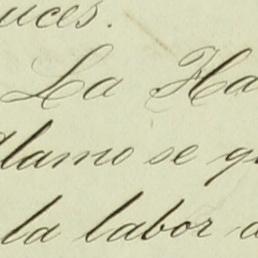 uces.
La Ha
Alamo se q
la labor d